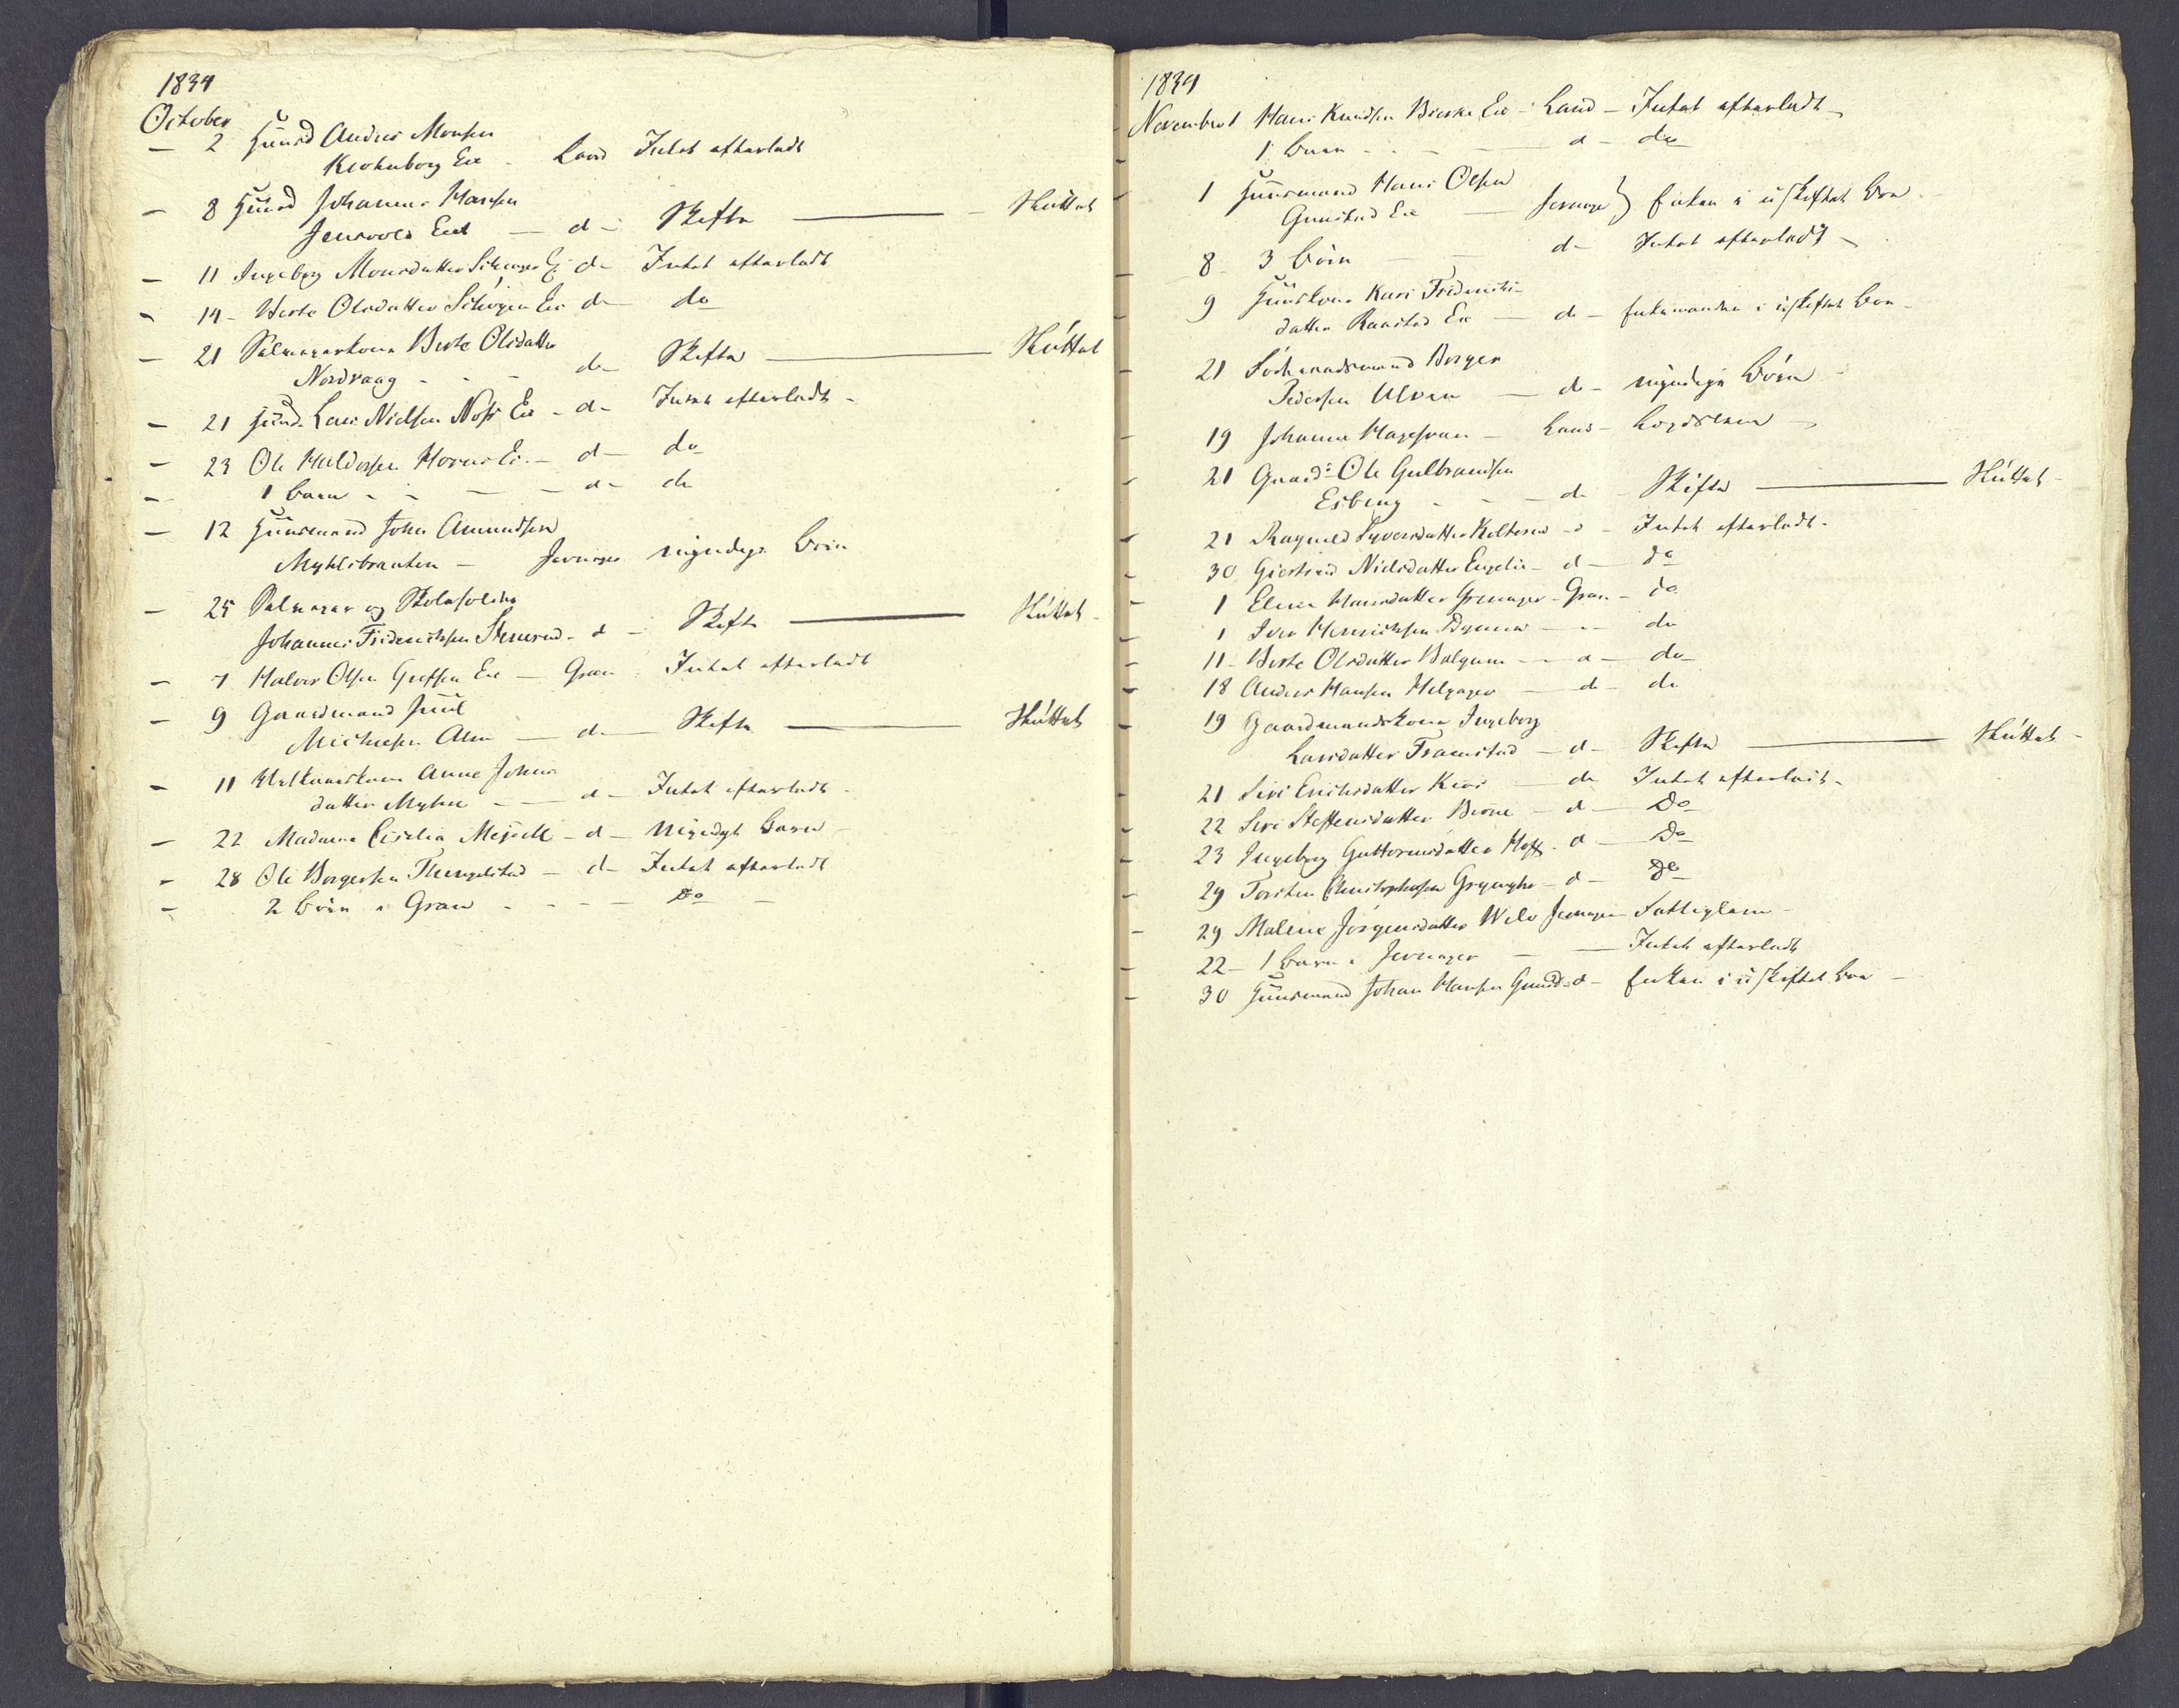 1834
October
— 2 Huusmd Anders Monsen
Krohnborg Eie - Land Intet efterladt
— 8 Huusmd Johannes Hansen
Jensvold Eiet — d — Skifte — Sluttet
— 11 Ingeborg Monsdatter Ei d— Intet efterladt
— 14 - Berte Olsdatter Eie d— do
— 21 Selveierkone Berte Olsdatter
Nordraag - - - d— Skifte — Sluttet
— 21 Huusmd Lars Nielsen Eie - d— Intet efterladt -
— 23 Ole Haldorsen Ei. — d— do
— 1 Barn - - — — d— do
— 12 Huusmand John Amundsen
Myhlsbraaten — Jevnager myndige Børn
— 25 Selveier og
Johannes Friderichsen Stenerud - d — Skifte — Sluttet -
— 7 Halvor Olsen Eie — Gran Intet efterladt
— 9 Gaardmand Juul
Michelsen Alm — d— Skifte — Sluttet
— 11 Anne Johns
datter Myhre — — d— Intet efterladt -
— 22 Madame Cicilia — d— Myndigt Barn
— 28 Ole Borgersen Thingelstad — d— Intet efterladt
— 2 Børn i Gran - - - — Do —
1834
November 1 Hans Knudsen Bierke Eie - Land — Intet efterladt —
— 1 Barn - - — d— do
— 1 Huusmand Hans Olsen
Eie — Jevnager } Enken i uskiftet Boe -
— 8 - 3 Børn — — d— Intet efterladt —
— 9 Huuskone Kari Friderichs-
datter Raastad Eie — d — Enkemanden i uskiftet Boe -
— 21 Borger
Pedersen Ulven — d— myndige Børn -
— 19 Johanne — Land —
— 21 Gaard: Ole Gulbrandsen
Esberg - - - d— Skifte — Sluttet -
— 21 Ragnild Syversdatter - d — Intet efterladt -
— 30 Giertrud Nielsdatter Engelie — d — do
— 1 Elene Hansdatter Grinager - Gran — do
— 1 Iver Henrichsen — — do
— 11 - Berte Olsdatter — d— do
— 18 Anders Hansen Helgager — d— do
— 19 Gaardmandskone Ingeborg
Larsdatter Framstad — d— Skifte — Sluttet -
— 21 Siri Erichsdatter — d— Intet efterladt -
— 22 Siri Steffensdatter — d— Do
— 23 Ingeborg Guttormsdatter - d — Do
— 29 Torsten Christophersen — d— Do
— 29 Malene Jørgensdatter Jevnager Fattiglem -
— 22 — 1 Barn i Jevnager — — Intet efterladt
— 30 Huusmand Johan Hansen - d — Enken i uskiftet Boe —